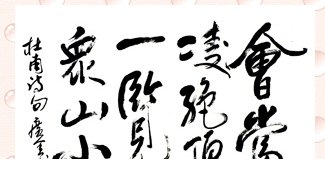 會當
凌絶頂
一覽
衆山小
杜甫詩句